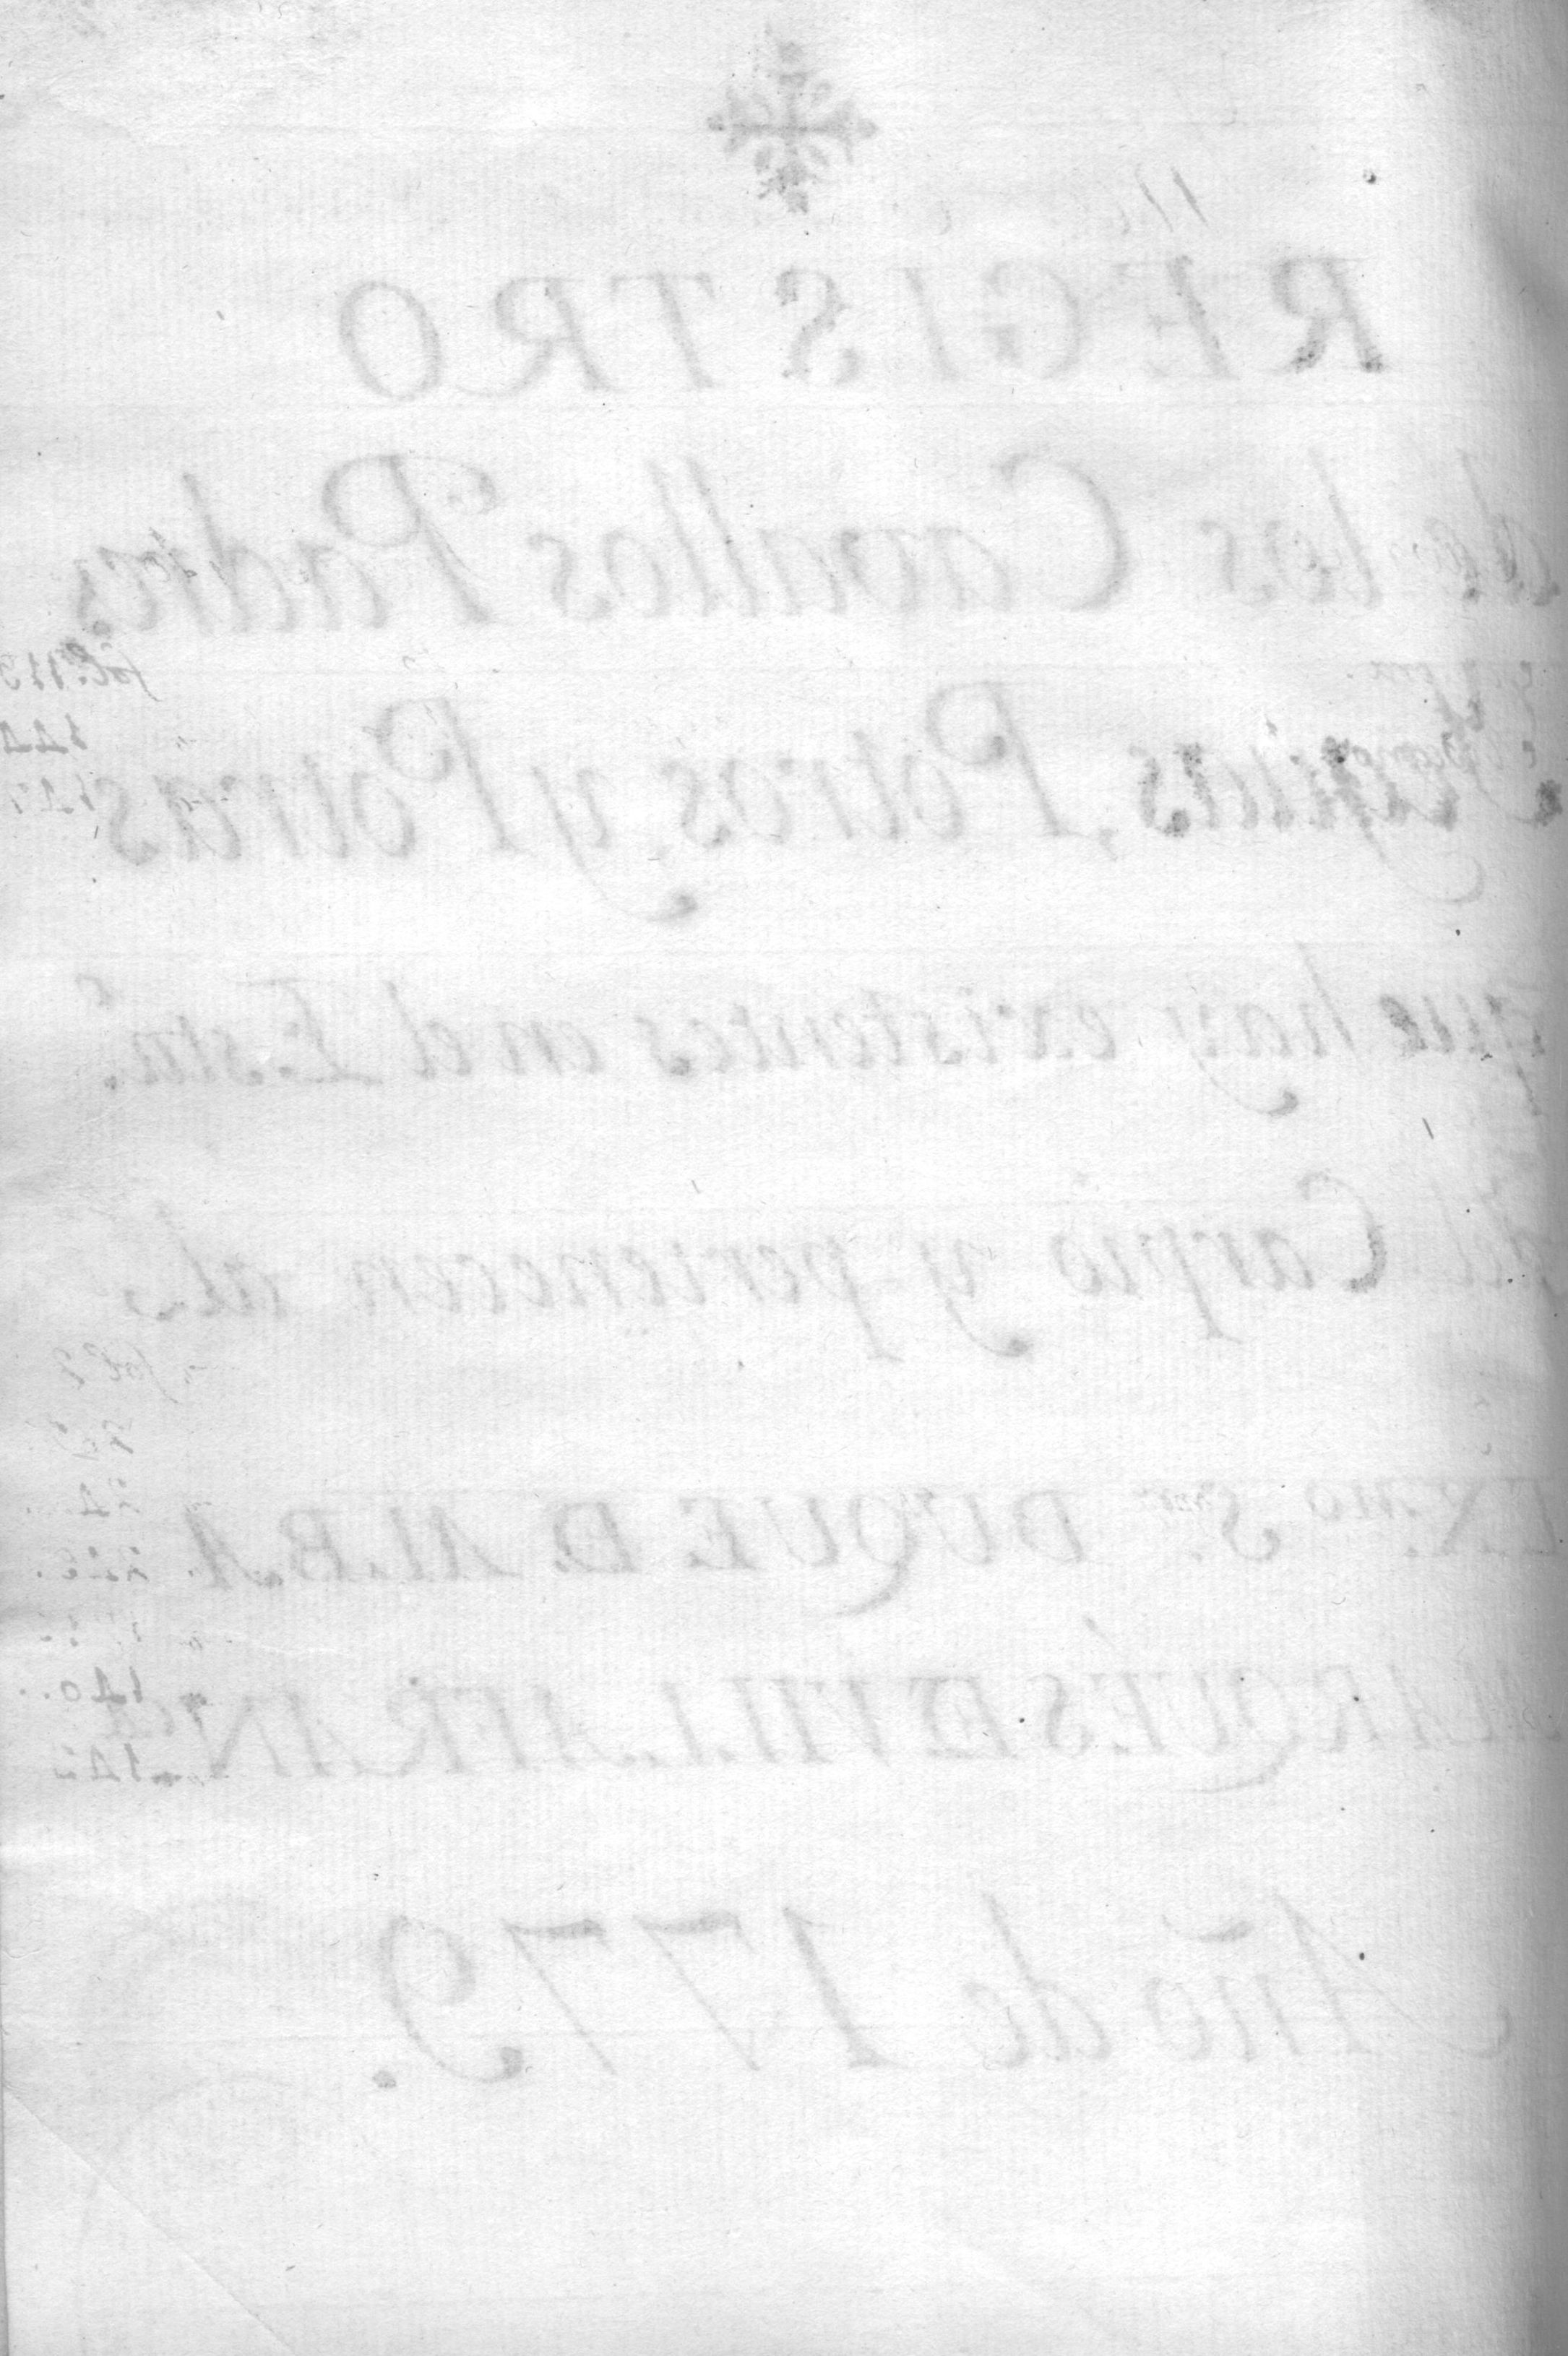 REGISTRO
de los Cavallos Padres,
Yeguas, Potros, y Potras
que hay existentes en el Esta.º
del Carpio y pertenecen al
EX.mo S.or DUQUE DE ALBA.
MARQUÉS DE VILLAFRANCA
Año de 1779.
fol. 119
144
fol. 7
140